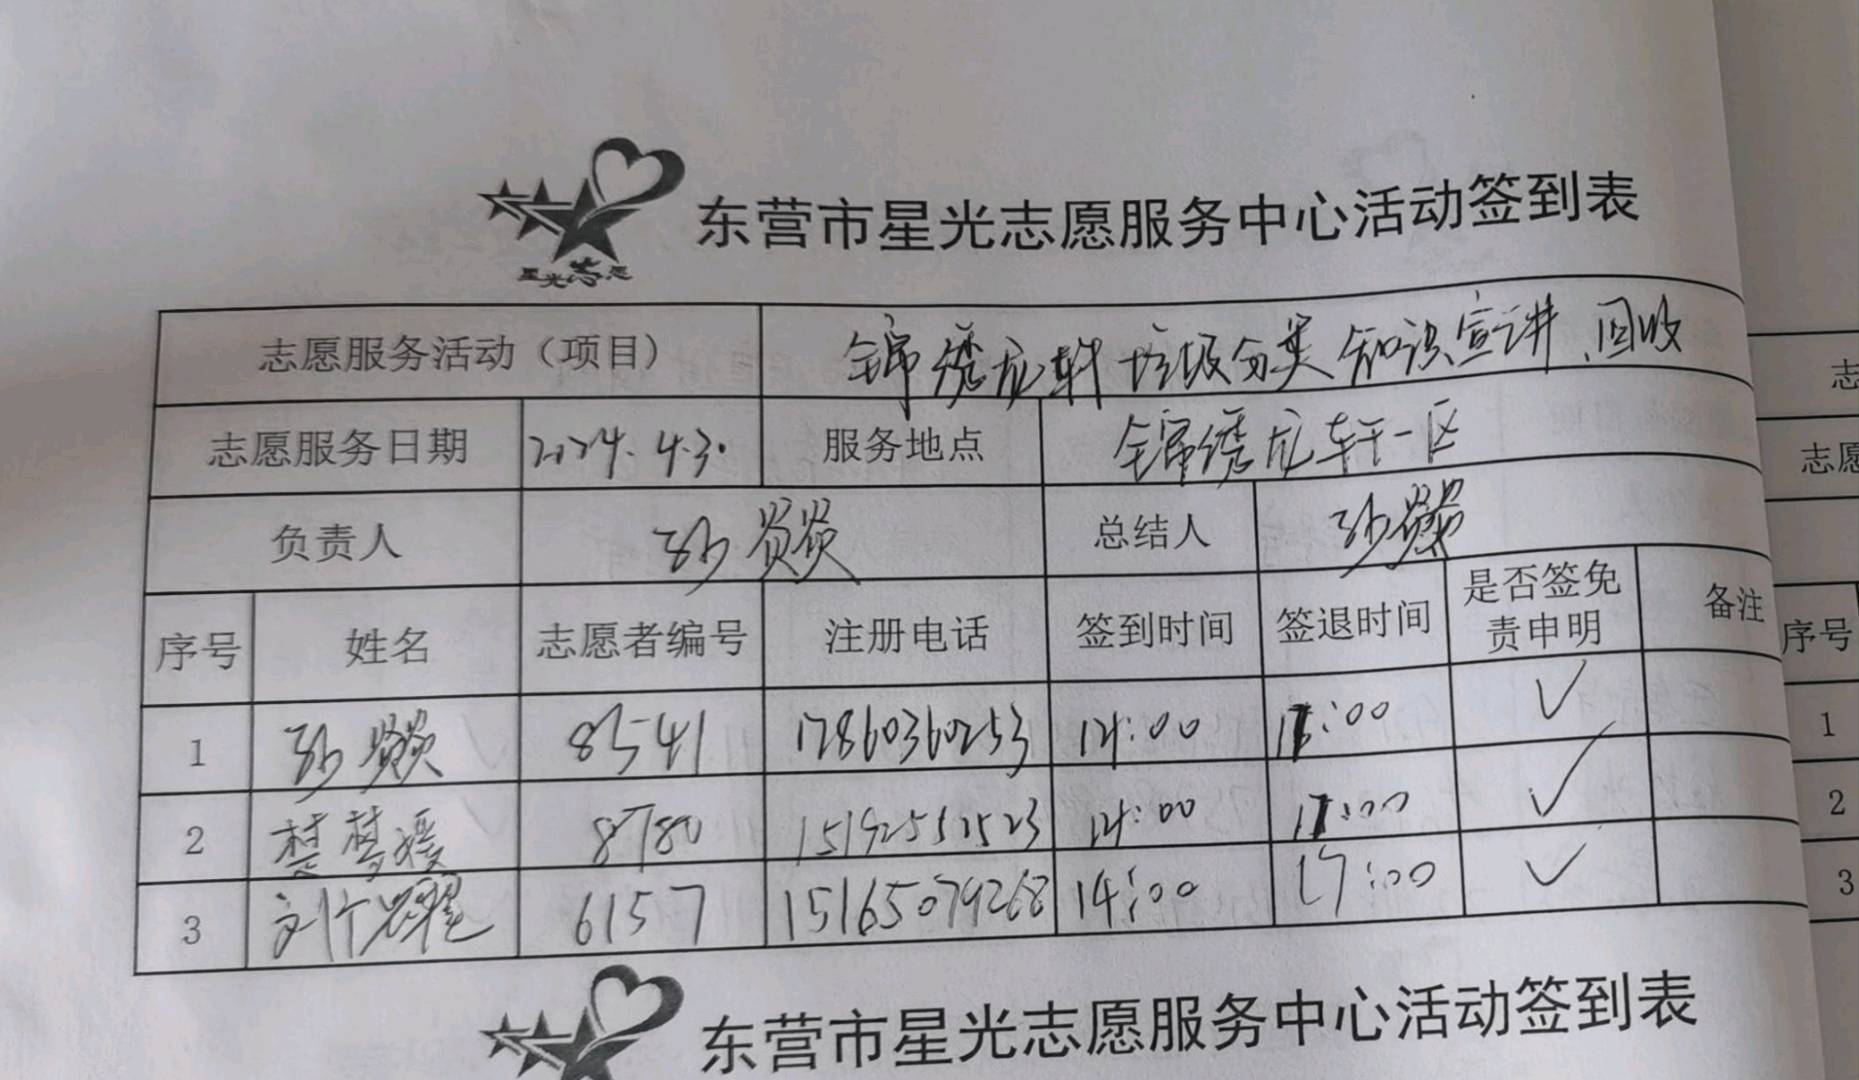 星光志愿
东营市星光志愿服务中心活动签到表
志愿服务活动（项目） 锦绣龙轩垃圾分类知识宣讲、回收
志愿服务日期 2024.4.30. 服务地点 锦绣龙轩一区
负责人 孙 总结人 孙
序号 姓名 志愿者编号 注册电话 签到时间 签退时间 是否签免责申明 备注
1 孙 8541 17860360253 14:00 17:00 ✓
2 楚梦媛 8780 15192512523 14:00 17:00 ✓
3 刘 6157 15165079268 14:00 17:00 ✓
东营市星光志愿服务中心活动签到表
志
志愿
序号
1
2
3